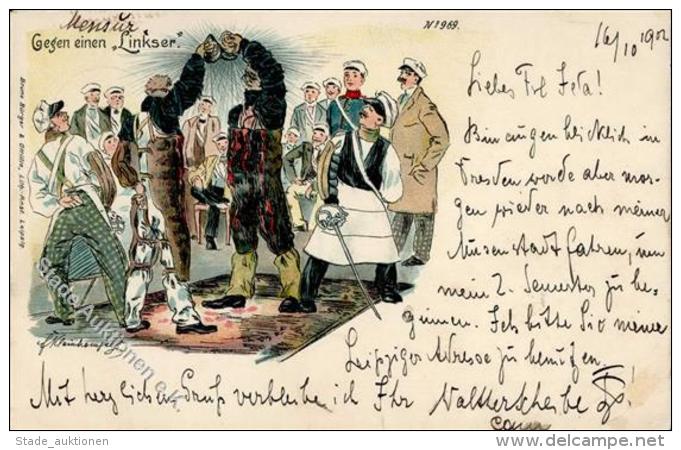 Mensur
Gegen einen "Linkser."
No 969.
Bruno Bürger & Ottillie, Lith. Anst. Leipzig.
16/10 1902
Liebes Frl
Bin augenblicklich in
Dresden werde aber mor-
gen wieder nach meiner
Musenstadt fahren, um
mein 2. Semester zu be-
ginnen. Ich bitte Sie meine
Leipziger Adresse zu benutzen.
Mit herzlichem Gruß verbleibe ich Ihr
Stade Auktionen e.K.
Stade_auktionen
www.delcampe.net